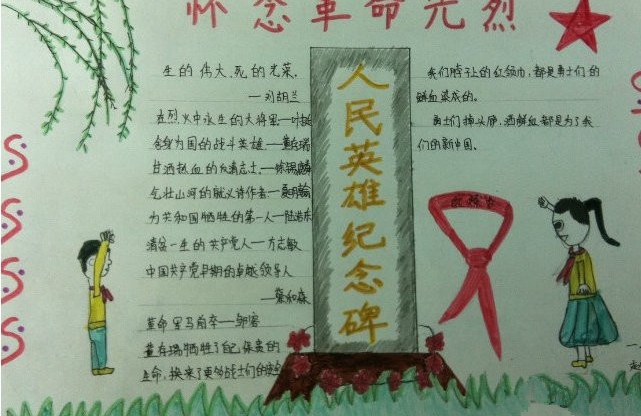 怀念革命先烈
生的伟大,死的光荣。
——刘胡兰
在烈火中永生的大将军—叶挺
舍身为国的战斗英雄—董存瑞
甘洒热血的抗清志士—
气壮山河的就义诗作者—夏明翰
为共和国牺牲的第一人—陆治东
清贫一生的共产党人—方志敏
中国共产党早期的卓越领导人
—蔡和森
革命军马前卒—邹容
董存瑞牺牲了自己保贵的
生命,换来了更多战士们的安全
人民英雄纪念碑
我们脖子上的红领巾,都是勇士们的
鲜血染成的。
勇士们掉头颅,洒鲜血都是为了我
们的新中国。
红领巾